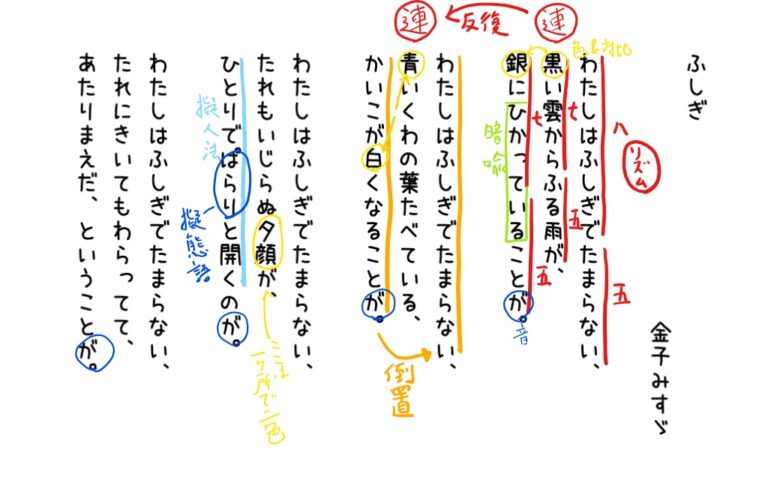 ふしぎ
金子みすゞ
わたしはふしぎでたまらない、
黒い雲からふる雨が、
銀にひかっていることが。
わたしはふしぎでたまらない、
青いくわの葉たべている、
かいこが白くなることが。
わたしはふしぎでたまらない、
たれもいじらぬ夕顔が、
ひとりでぱらりと開くのが。
わたしはふしぎでたまらない、
たれにきいてもわらってて、
あたりまえだ、ということが。
連
反復
連
色の対比
リズム
八
五
七
五
七
五
暗喩
音
倒置
擬人法
擬態語
ここは
一ヶ所で二色